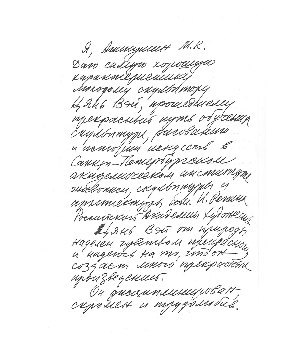 Я, Аникушин М.К.
Даю самую хорошую
характеристику
молодому скульптору
Цянь Вэй, прошедшему
прекрасный путь обучения
скульптуре, рисованию
и истории искусств в
Санкт-Петербургском
академическом институте
живописи, скульптуры и
архитектуры им. И. Репина
Российской Академии Художеств
Цянь Вэй от природы
наделен чувством прекрасного
и надеюсь на то, что он
создаст много прекрасных
произведений.
Он дисциплинирован,
скромен и трудолюбив,